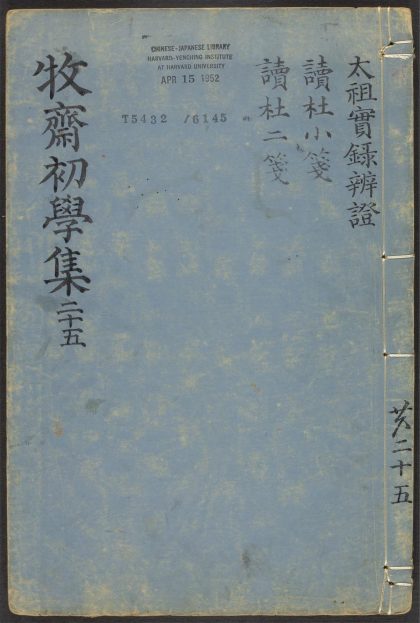 太祖實錄辨證
讀杜小箋
讀杜二箋
CHINESE-JAPANESE LIBRARY
HARVARD-YENCHING INSTITUTE
AT HARVARD UNIVERSITY
APR 15 1952
T5432 /6145
牧齋初學集二十五
二十五